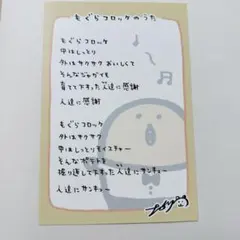 もぐらコロッケのうた
もぐらコロッケ
中はしっとり
外はサクサク おいしくて
そんなじゃがイモ
育て下さった人達に感謝
人達に感謝
もぐらコロッケ
外はサクサク
中はしっとりモイスチャー
そんなポテトを
掘り返して下さった人達にサンキュー
人達にサンキュー